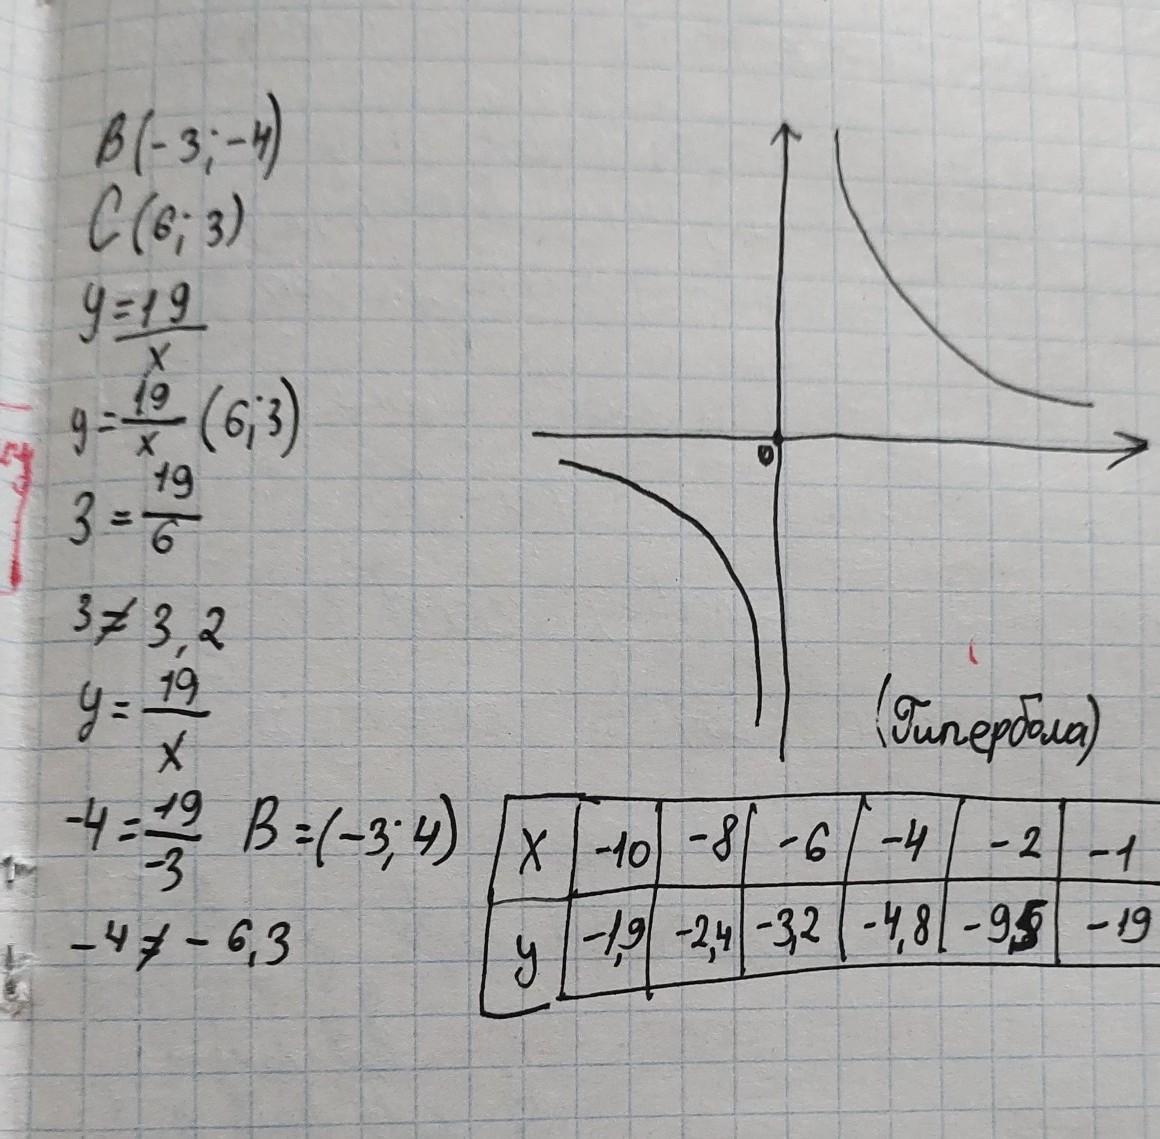 B(-3;-4)
C(6;3)
y=19/x
y=19/x (6;3)
3=19/6
3≠3,2
y=19/x
-4=19/-3 B=(-3;4)
-4≠-6,3
0
(Гипербола)
x -10 -8 -6 -4 -2 -1
y -1,9 -2,4 -3,2 -4,8 -9,5 -19